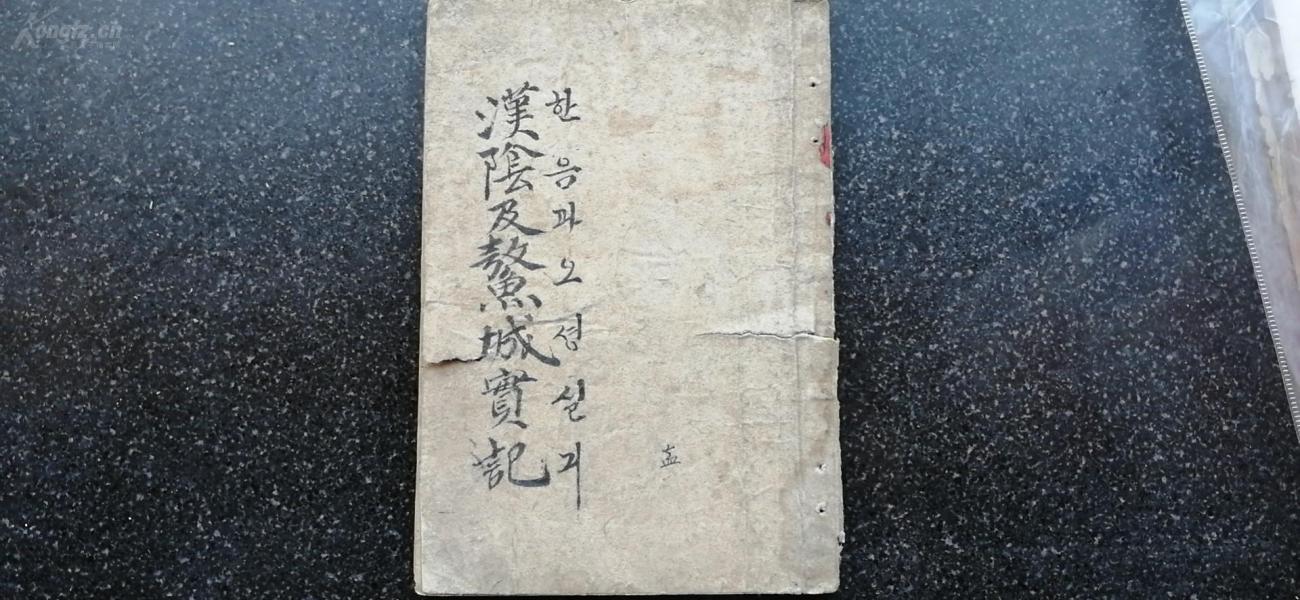 한음과오셩실긔
漢陰及鰲城實記
盍
Kongfz.cn